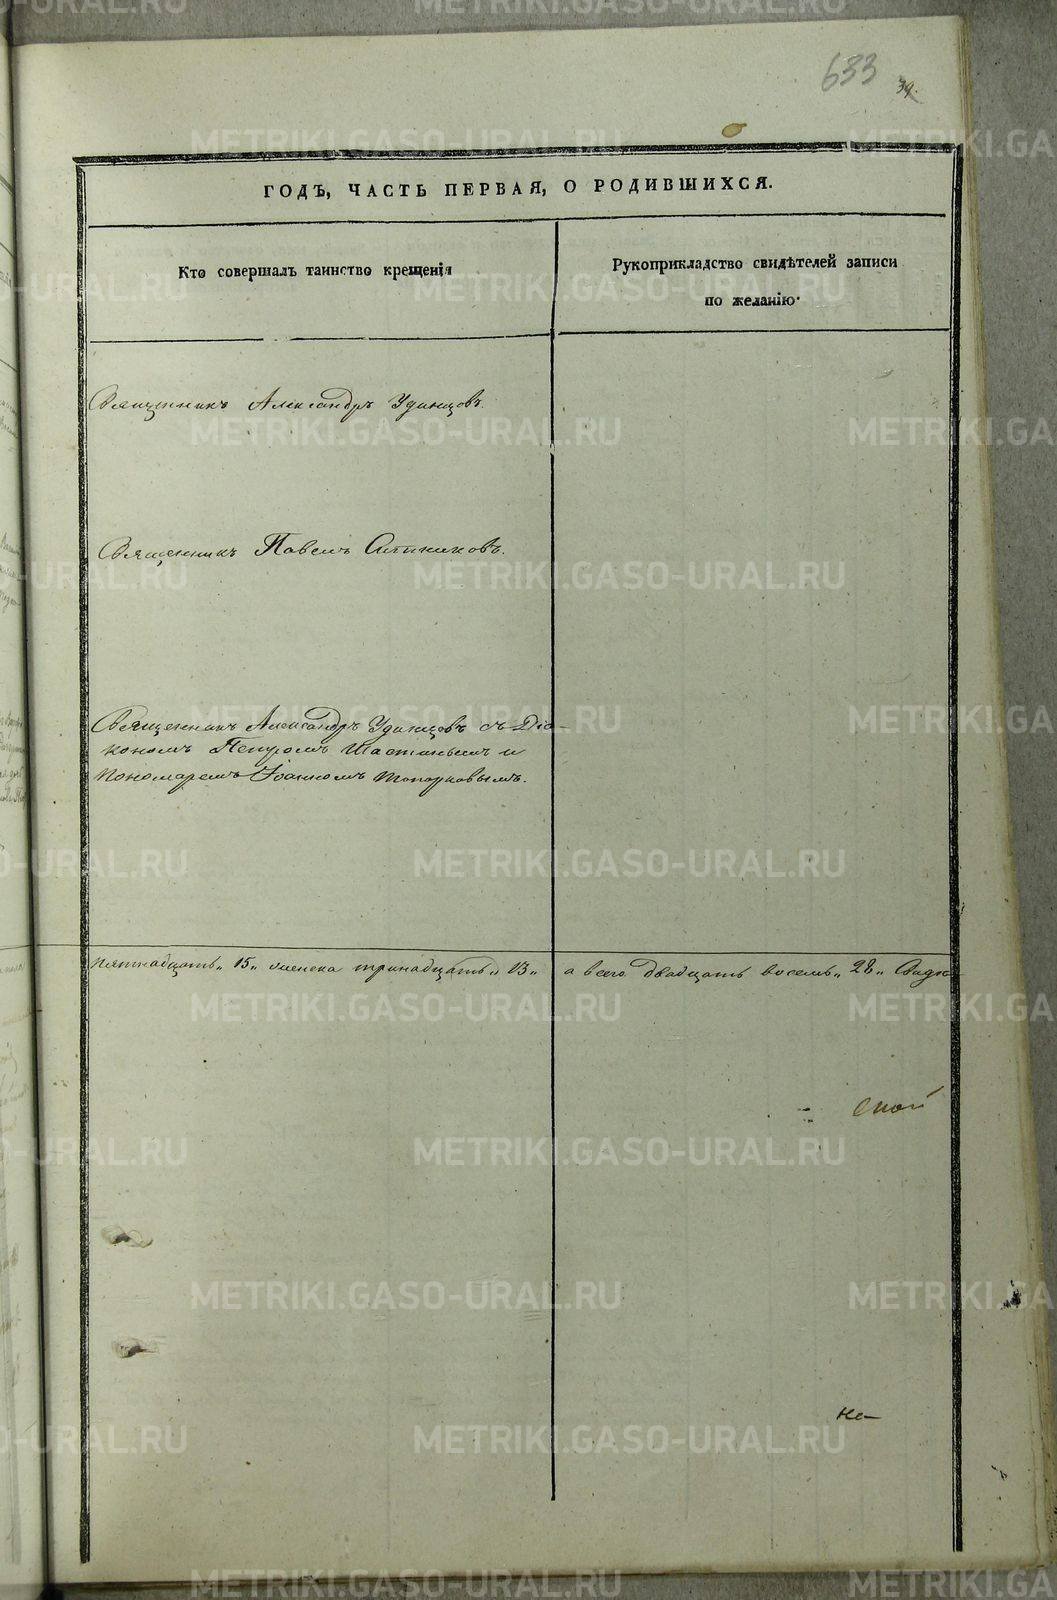 633
39.
ГОДЪ, ЧАСТЬ ПЕРВАЯ, О РОДИВШИХСЯ.
Кто совершалъ таинство крещенія
Рукоприкладство свидѣтелей записи
по желанію.
Священникъ Александръ Удинцовъ.
Священникъ Павелъ Ситниковъ.
Священникъ Александръ Удинцовъ съ Діа-
кономъ Петромъ и
Пономаремъ Іоанномъ Топорковымъ.
Пятнадцать „15„ женска тринадцать „13„ а всего двадцать восемь „28„
ской
не-
METRIKI.GASO-URAL.RU